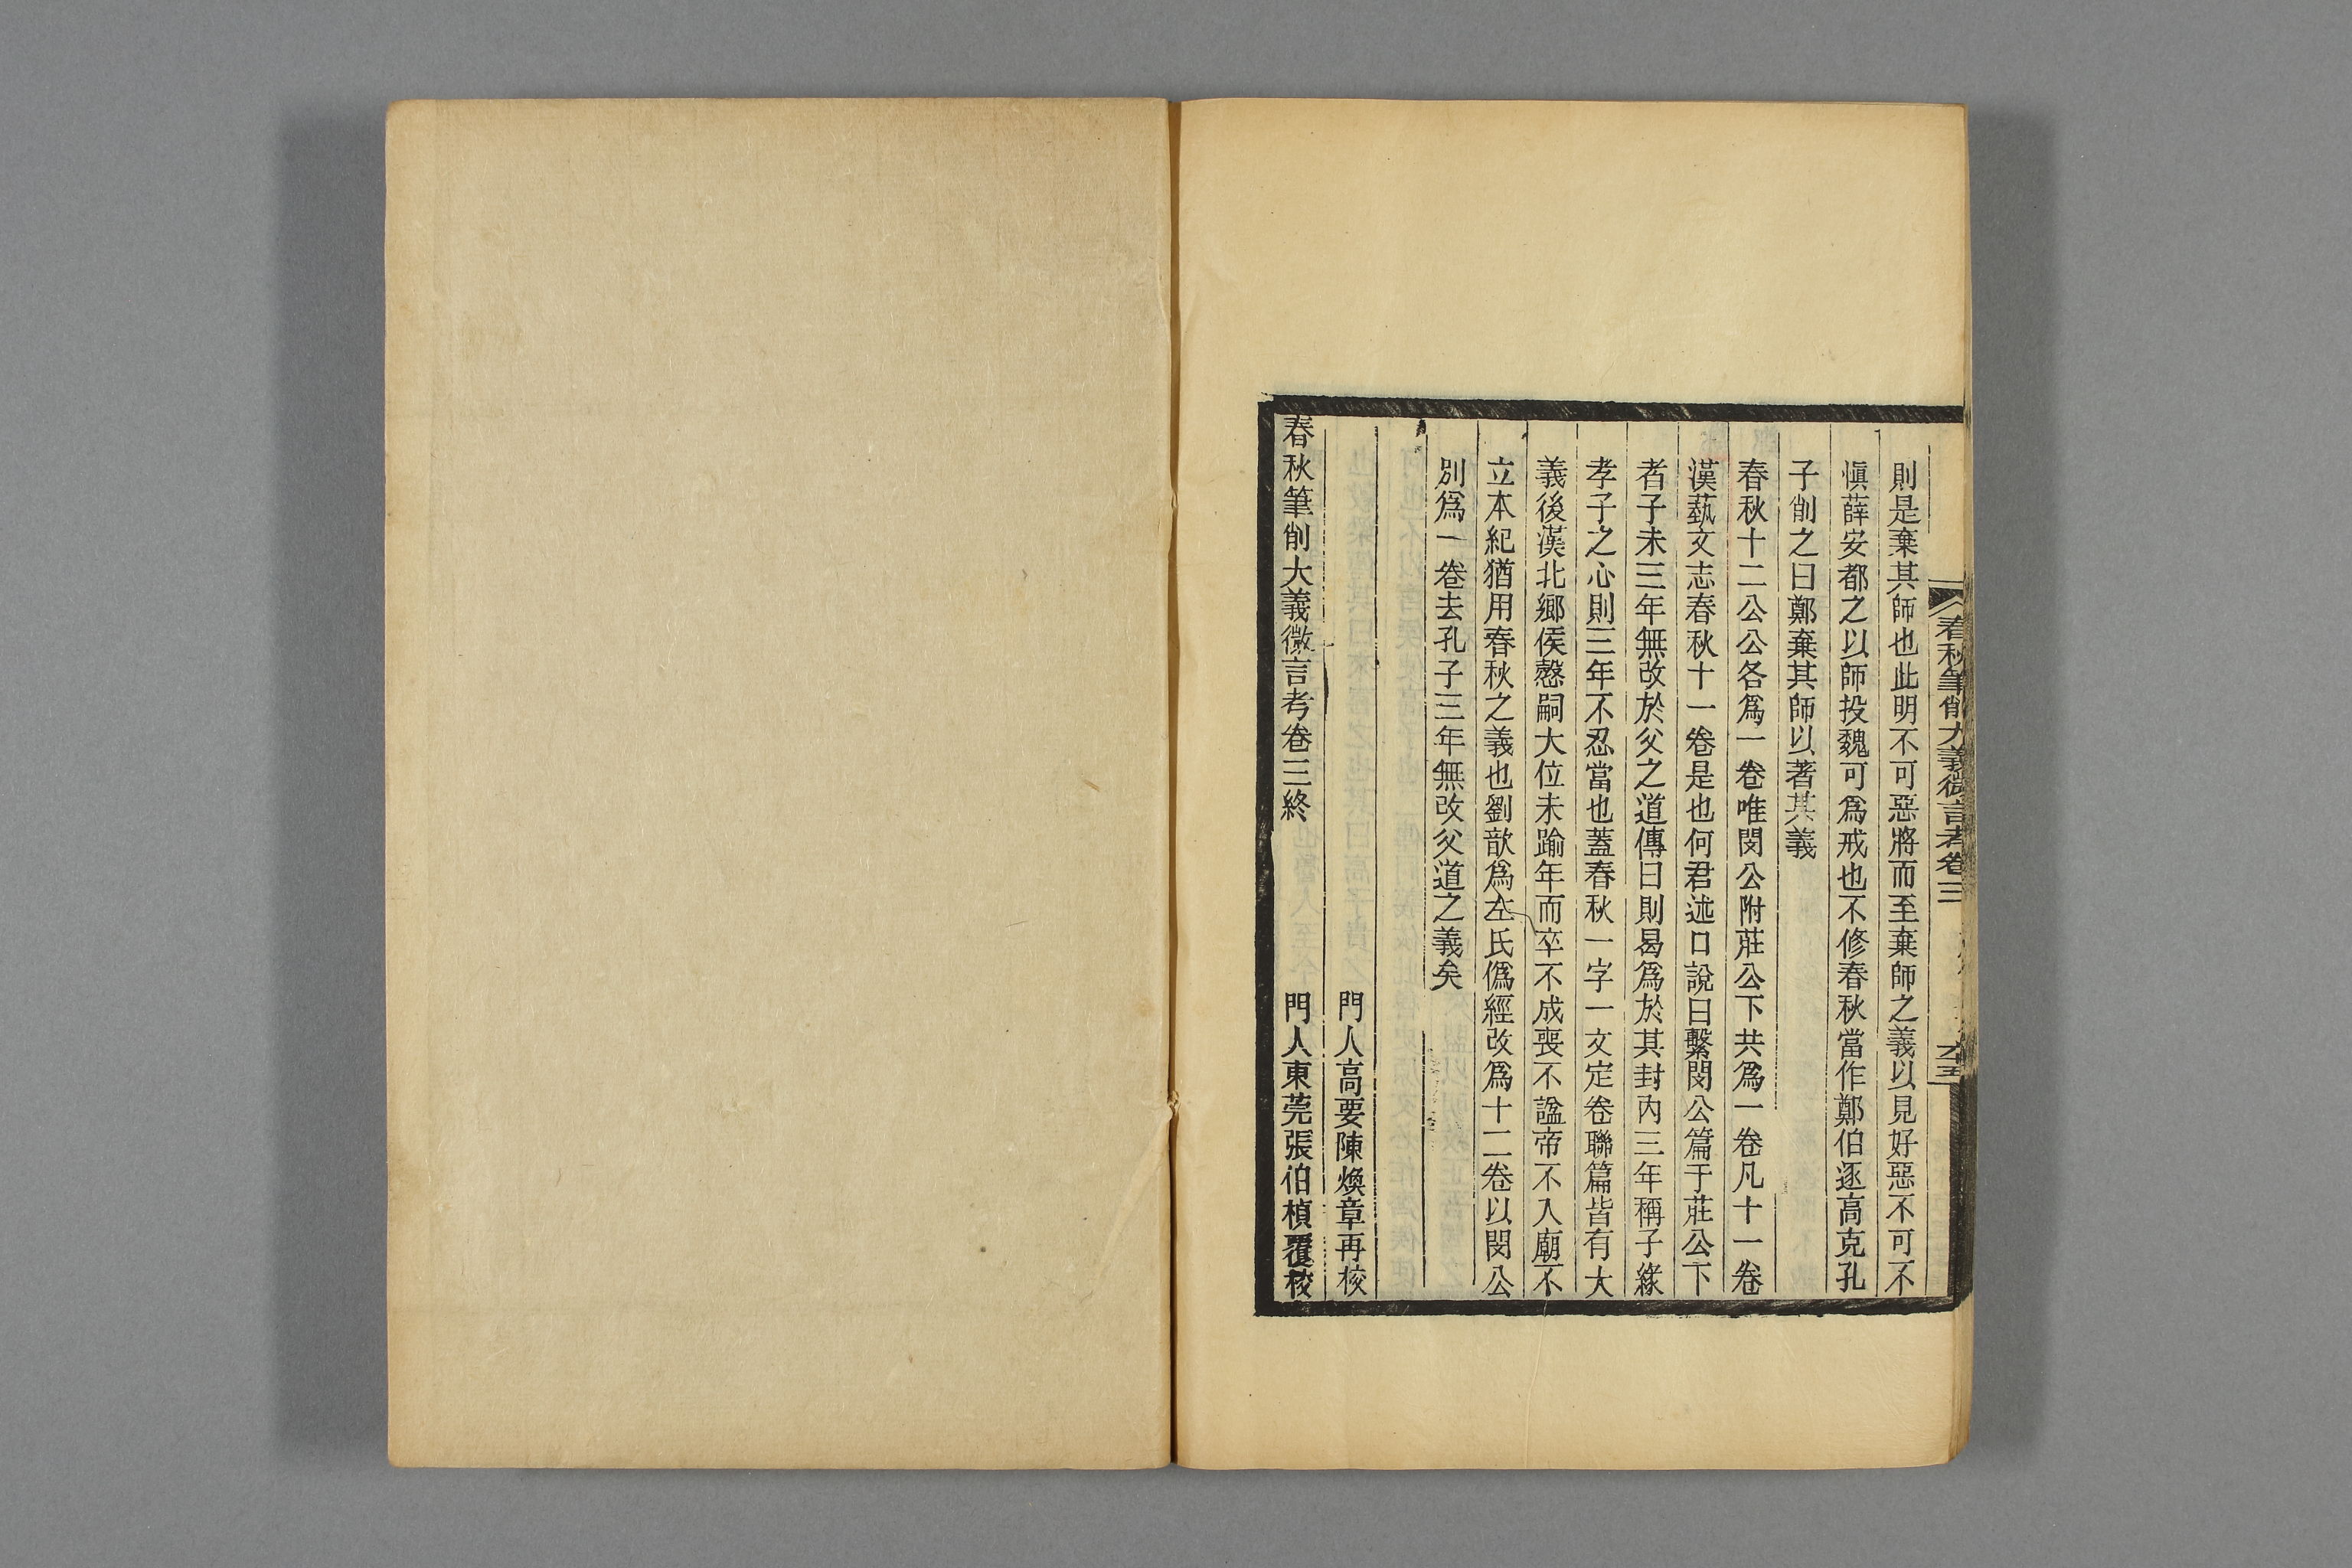 春秋筆削大義微言考卷三
則是棄其師也此明不可惡將而至棄師之義以見好惡不可不
愼薛安都之以師投魏可爲戒也不修春秋當作鄭伯逐高克孔
子削之曰鄭棄其師以著其義
春秋十二公公各爲一卷唯閔公附莊公下共爲一卷凡十一卷
漢藝文志春秋十一卷是也何君述口說曰繫閔公篇于莊公下
者子未三年無改於父之道傳曰則曷爲於其封內三年稱子緣
孝子之心則三年不忍當也蓋春秋一字一文定卷聯篇皆有大
義後漢北鄉侯懸嗣大位未踰年而卒不成喪不諡帝不入廟不
立本紀猶用春秋之義也劉歆爲左氏僞經改爲十二卷以閔公
別爲一卷去孔子三年無改父道之義矣
門人高要陳煥章再校
春秋筆削大義微言考卷三終
門人東莞張伯楨覆校